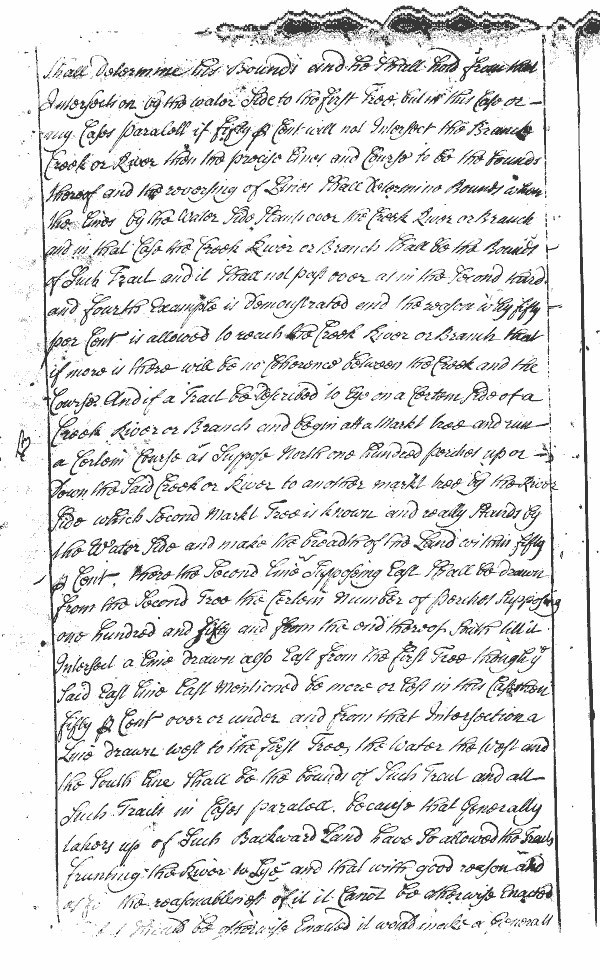 Shall Determine his Bounds and he Shall hold from that
Intersection by the water Side to the first Tree but in this Case or
any Cases paralell if fifty ꝑ Cent will not Intersect the Branch
Creek or River then the precise Lines and Course to be the bounds
thereof and the reversing of Lines Shall Determine Bounds when
the Lines by the Water Side Stands over the Creek River or Branch
and in that Case the Creek River or Branch Shall be the Bounds
of Such Tract and it Shall not pass over as in the Second third
and fourth Example is Demonstrated and the reason why fifty
per Cent is allowed to reach the Creek River or Branch that
if more is there will be no Coherence between the Creek and the
Course And if a Tract be Described to Lye on a Certein Side of a
Creek River or Branch and begin att a Markt tree and run
a Certein Course as Suppose North one hundred perches up or
Down the Said Creek or River to another markt tree by the River
Side which Second Markt Tree is known and really Stands by
the Water Side and make the breadth of the Land within fifty
ꝑ Cent. Where the Second Line Supposing East Shall be drawn
from the Second Tree the Certein Number of Perches Supposing
one hundred and fifty and from the end thereof South till it
Intersect a Line drawn also East from the first Tree though yᵉ
Said East Line Last Mentioned be more or Less in this Case then
fifty ꝑ Cent over or under and from that Intersection a
Line drawn west to the first Tree, the Water the West and
the South Line Shall be the bounds of Such Tract and all
Such Tracts in Cases paralell. because that Generally
takers up of Such Backward Land have So allowed the Tracts
frunting the River to Lye and that with good reason and
as to the reasonableness of it it Canot be otherwise Enacted
Should be otherwise Enacted it would make a Generall